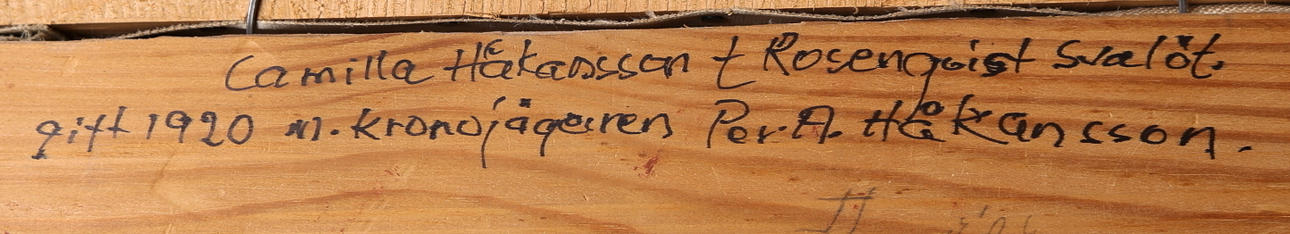 Camilla Håkansson f Rosenquist Svalöt.
gift 1920 m. kronojägaren Per. A. Håkansson.